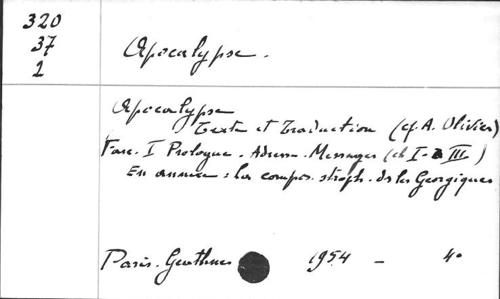 320
37
2
Apocalypse.
Apocalypse
Texte et Traduction (cf. A. Olivier)
Fasc. I Prologue. Adresse. Messages (ch I-III)
En annexe : la compos. stroph. ds les Georgiques
Paris. Geuthner 1954 - 4°